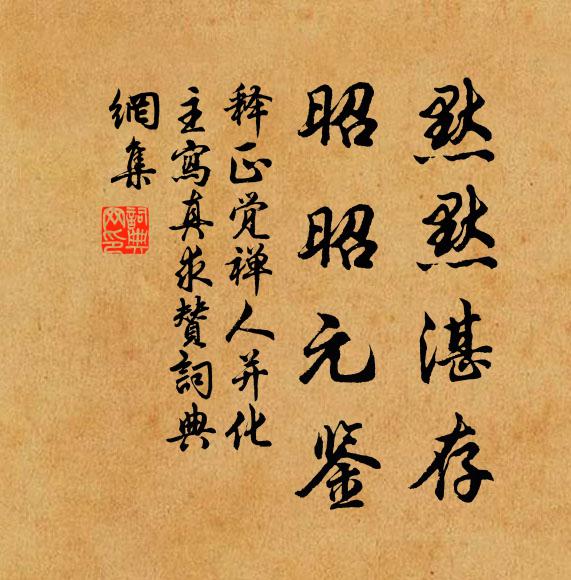 默默湛存
昭昭元鉴
释正觉禅人并化
主寫真求赞詞典
網集
詞典网印